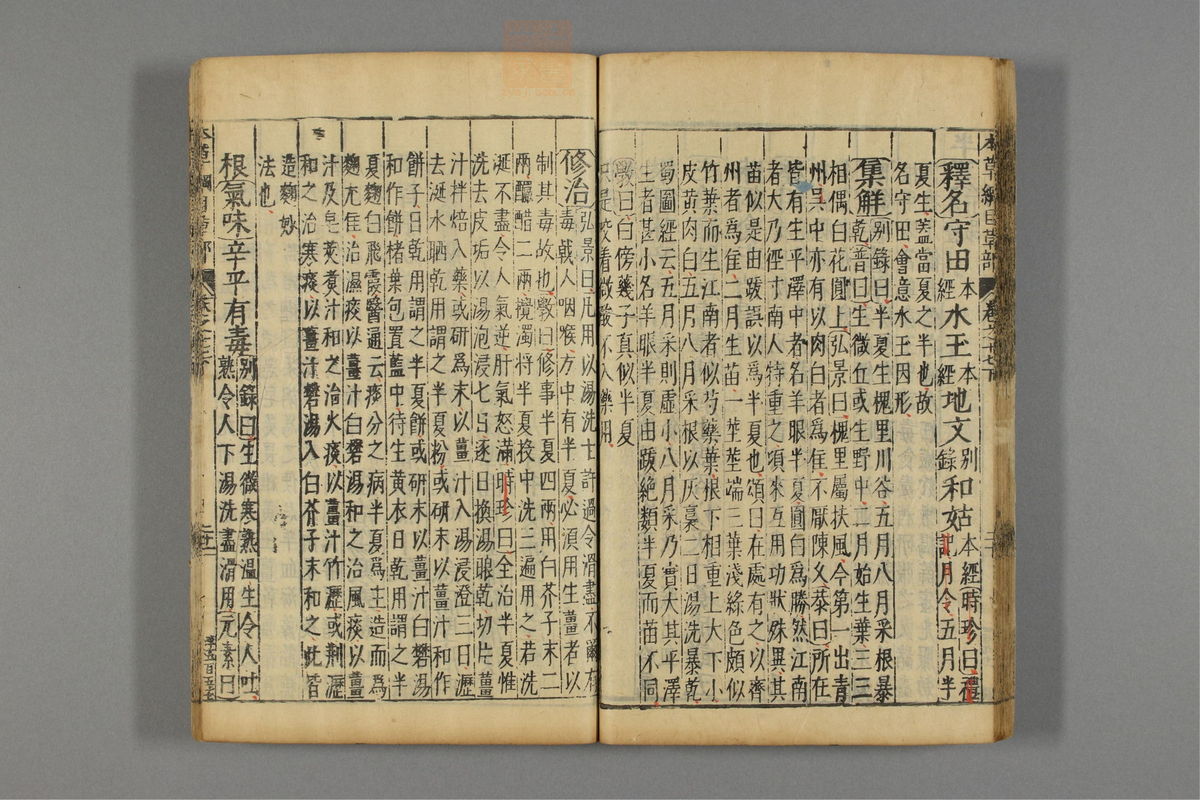 本草綱目草部 卷之十七下 二十
釋名 守田本經 水玉本經 地文別錄 和姑本經 時珍曰禮
記月令五月半
夏生蓋當夏之半也故
名守田會意水玉因形
集解 別錄曰半夏生槐里川谷五月八月采根暴
乾普曰生微丘或生野中二月始生葉三三
相偶白花圓上弘景曰槐里屬扶風今第一出青
州吳中亦有以肉白者為佳不厭陳久恭曰所在
皆有生平澤中者名羊眼半夏圓白為勝然江南
者大乃徑寸南人特重之頃來互用功狀殊異其
苗似是由跋誤以為半夏也頌曰在處有之以齊
州者為佳二月生苗一莖莖端三葉淺綠色頗似
竹葉而生江南者似芍藥葉根下相重上大下小
皮黃肉白五月八月采根以灰裛二日湯洗暴乾
蜀圖經云五月采則虛小八月采乃實大其平澤
生者甚小名羊眼半夏由跋絕類半夏而苗不同
斅曰白傍䕯子真似半夏
只是咬着微酸不入藥用
修治 弘景曰凡用以湯洗十許過令滑盡不爾有
毒戟人咽喉方中有半夏必須用生薑者以
制其毒故也斅曰修事半夏四兩用白芥子末二
兩釅醋二兩攪濁將半夏投中洗三遍用之若洗
涎不盡令人氣逆肝氣怒滿時珍曰今治半夏惟
洗去皮垢以湯泡浸七日逐日換湯眼乾切片薑
汁拌焙入藥或研為末以薑汁入湯浸澄三日瀝
去涎水晒乾用謂之半夏粉或研末以薑汁和作
餅子日乾用謂之半夏餅或研末以薑汁白礬湯
和作餅楮葉包置藍中待生黃衣日乾用謂之半
夏麴白飛霞醫通云痰分之病半夏為主造而為
麴尤佳治濕痰以薑汁白礬湯和之治風痰以薑
汁及皂莢煮汁和之治火痰以薑汁竹瀝或荊瀝
和之治寒痰以薑汁礬湯入白芥子末和之此皆
造麴妙
法也
根氣味辛平有毒 別錄曰生微寒熟溫生令人吐
熟令人下湯洗盡滑用元素曰